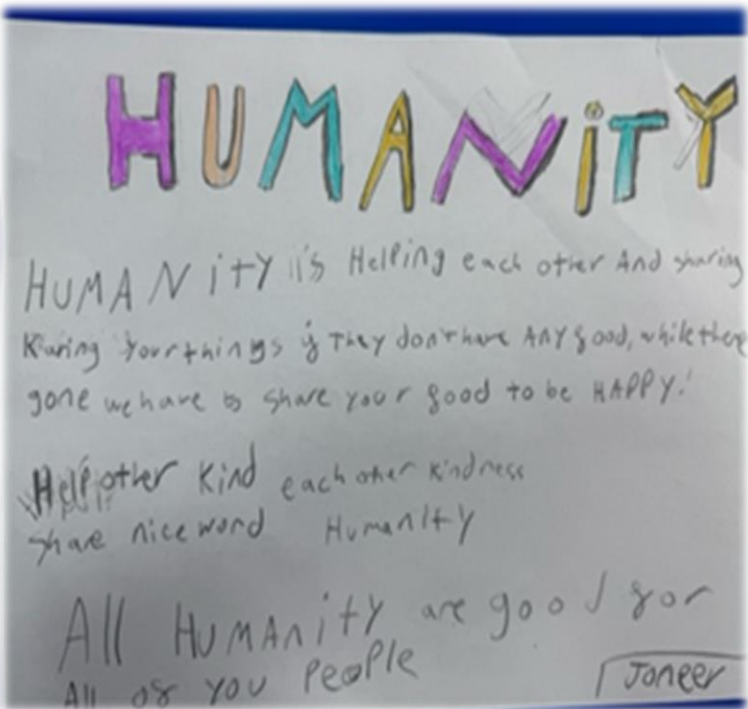 HUMANiTY
HUMANiTY is Helping each other And sharing
Karing Your things if They don't have ANY food, while there
gone we have to share your food to be HAPPY!
Help other Kind each other kindness
Share nice word HumaniTy
All HUMAniTY are good for
All of you PeoPle
Joneer